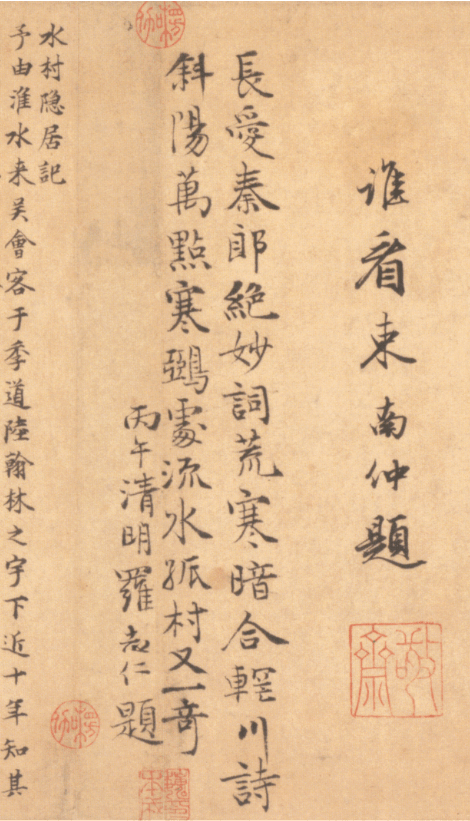 誰看束南仲題
敬齋
長愛秦郎絶妙詞荒寒暗合輞川詩
斜陽萬點寒鵶處流水孤村又一奇
丙午清明羅志仁題
水村隐居記
予由淮水来吴會客于季道陸翰林之宇下近十年知其